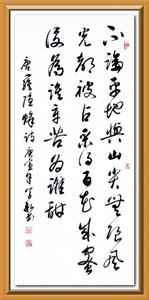 不論平地與山尖無限風
光都被占采得百花成蜜
後為誰辛苦為誰甜
唐羅隱蜂詩